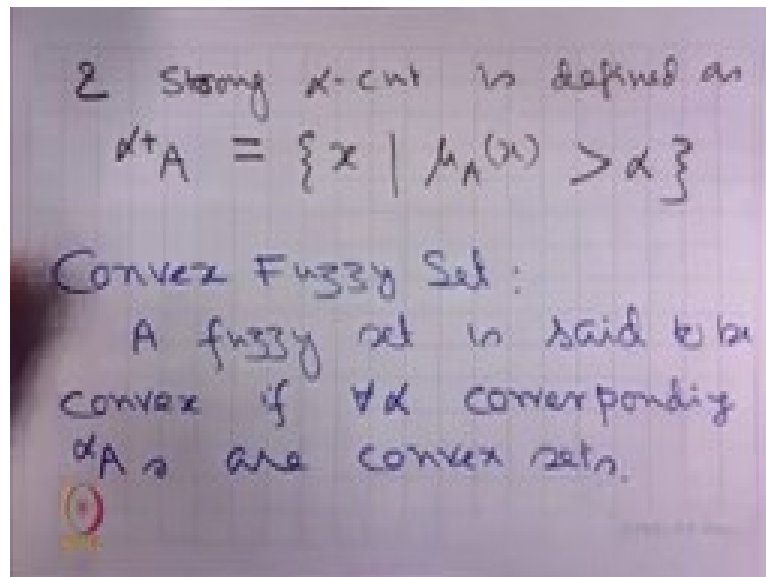 2 Strong α-cut is defined as
α+A = {x | μA(x) > α}
Convex Fuzzy Set:
A fuzzy set is said to be
convex if ∀α corresponding
αA s are convex sets.